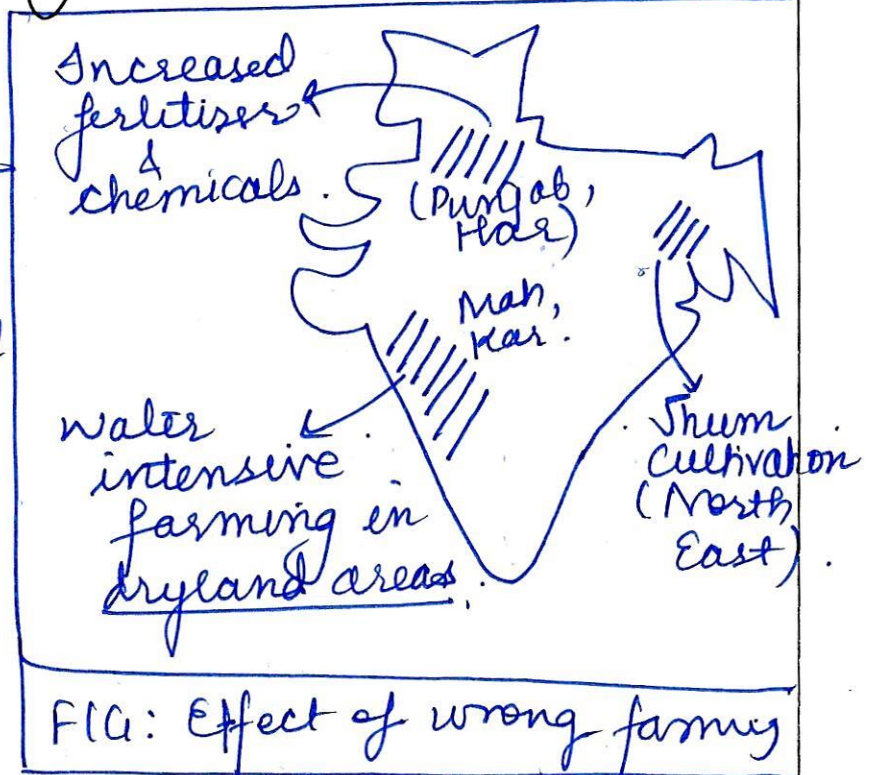 Increased
ferlitizer
&
chemicals.
(Punjab,
Har)
Mah,
Kar.
Water
intensive
farming in
dryland areas.
Jhum
Cultivation
(North
East).
FIG: Effect of wrong farming